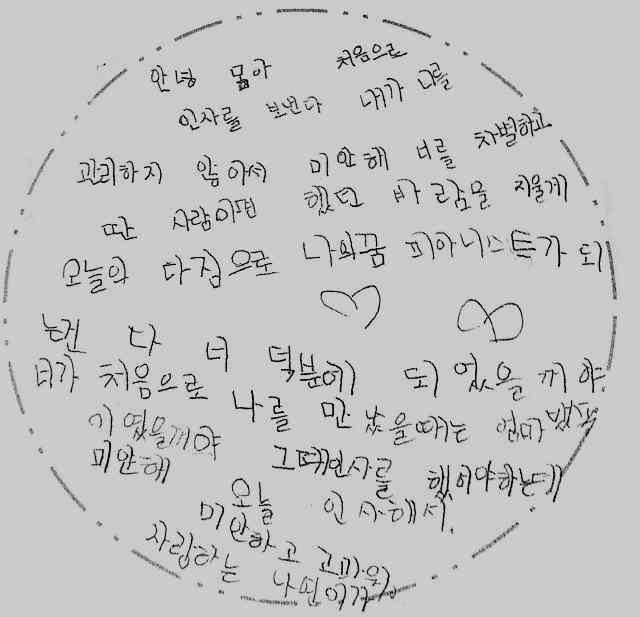 안녕 몸아 처음으로
인사를 보낸다 내가 너를
관리하지 않아서 미안해 너를 차별하고
딴 사람이면 했던 바람을 지울게
오늘의 다짐으로 나의꿈 피아니스트가 되
는건 다 너 덕분에 되 었을 꺼 야.
너가 처음으로 나를 만 났을때는 엄마 뱃속
이 였을꺼야
미안해 그때인사를 했어야하는데
오늘 인사해서.
미안하고 고마워.
사랑하는 나